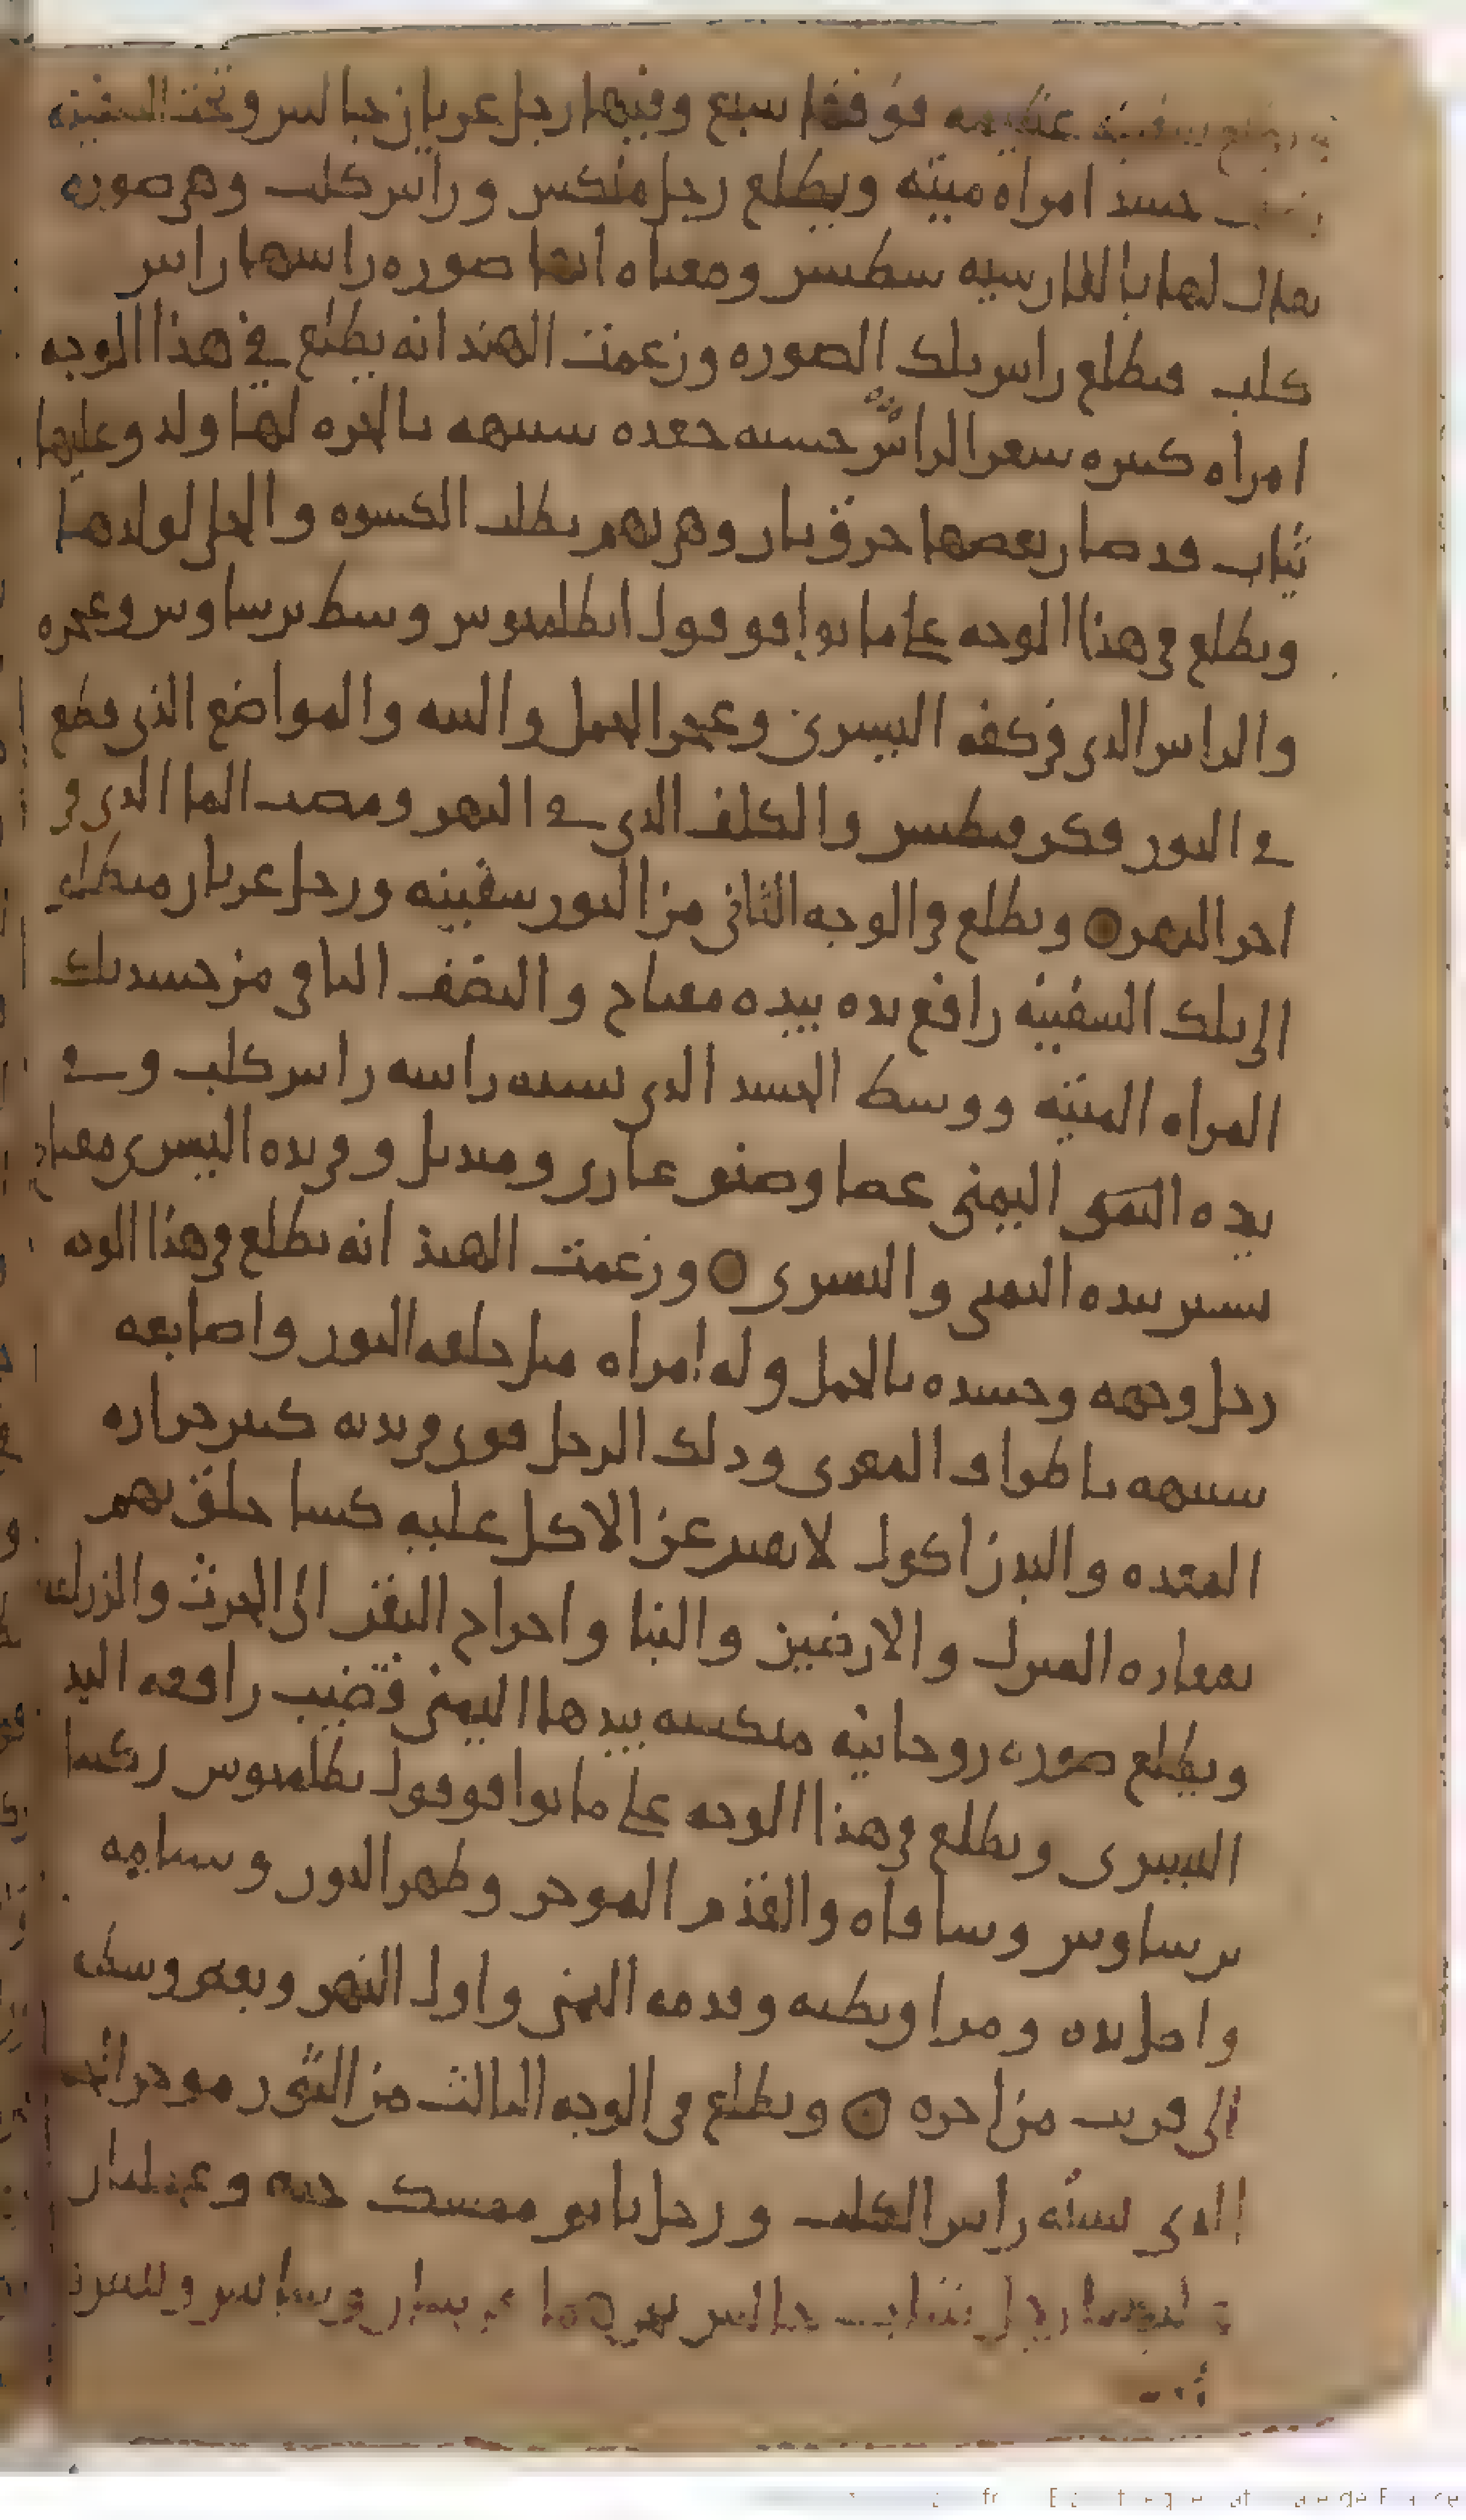 سفينه عظيمه فوقها سبع وفيها رجل عريان جالس وتحت السفينه
جسد امراه ميته ويطلع رجل منكس وراس كلب وهي صوره
يقال لها بالفارسيه سطسر ومعناه انها صوره راسها راس
كلب فيطلع راس تلك الصوره وزعمت الهند انه يطلع في هذا الوجه
امراه كثيره شعر الراس حسنه جعده شبيهه بالحره لها ولد وعليها
ثياب قد صار بعضها حرق بنار وهي تهم بطلب الكسوه والحلي لولدها
ويطلع في هذا الوجه على ما يوافق قول ابطلميوس وسط برساوس وعجزه
والراس الذي في كفه اليسرى وعجز الحمل واليته والمواضع الذي قطع
في الثور وكرفيطيسر والكلف الذي في النهر ومصب الما الذي في
اخر النهر ٥ ويطلع في الوجه الثاني من الثور سفينه ورجل عريان
الى تلك السفينه رافع يده بيده مفتاح والنصف الباقي من جسد تلك
المراه الميته ووسط الجسد الذي يشبه راسه راس كلب وفي
يده اليمنى اليمنى عصا وصنو ومنديل وفي يده اليسرى مفتاح
يشير بيده اليمنى واليسرى ٥ وزعمت الهند انه يطلع في هذا الوجه
رجل وجهه وجسده بالحمل وله امراه مثل خلقه الثور واصابعه
شبيهه باظلاف المعزى وذلك الرجل قوي في بدنه كثير حراره
المعده والبدن اكول لا يصبر عن الاكل عليه كسا خلق يهم
بعماره المنزل والارضين والبنا واخراج البقر الى الحرث والزراعه
ويطلع صوره روحانيه منكسه بيدها اليمنى قضيب رافعه اليد
اليسرى ويطلع في هذا الوجه على ما يوافق قول بطلميوس ركبتا
برساوس وساقاه والقدم الموخر وظهر الثور وسنامه
واصل يده ومراق بطنه وقدمه اليمنى واول النهر وبعض وسطه
الى قريب من اخره ٥ ويطلع في الوجه الثالث من الثور موخر
الذي يشبه راس الكلب ورجل قايم ممسك حيه وعجلتان
رجل شاب جالس